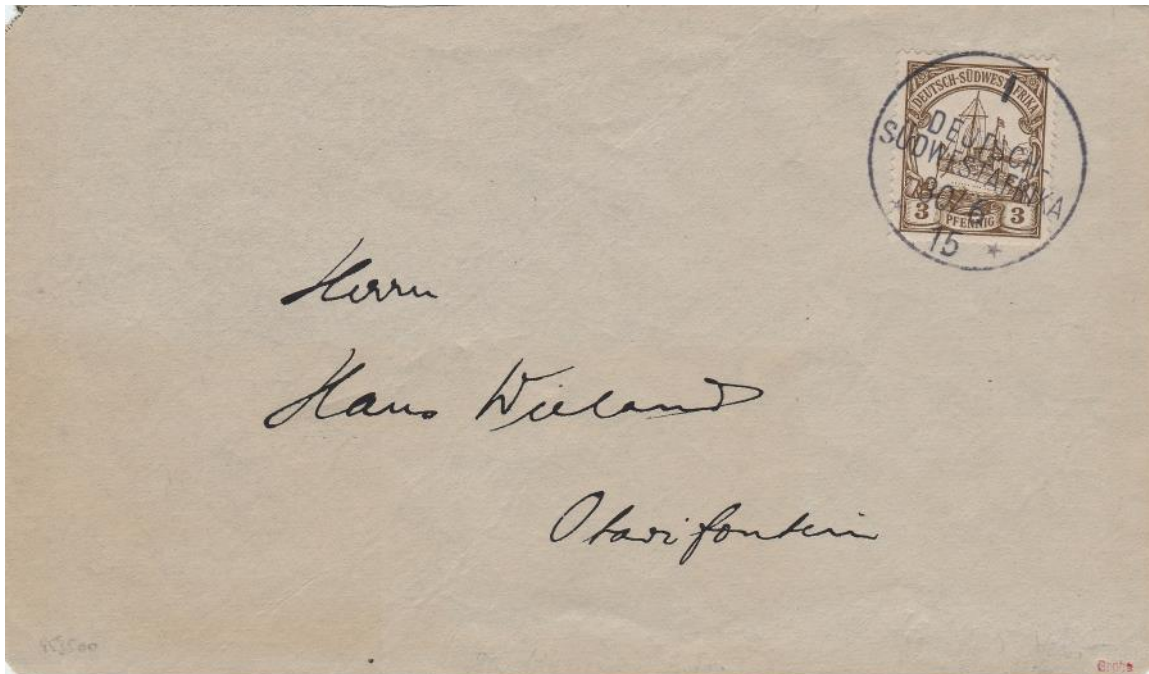 DEUTSCH-SÜDWESTAFRIKA
3 PFENNIG 3
I
DEUTSCH-
SÜDWESTAFRIKA
30/6
15 *
Herrn
Hans Wieland
Otavifontein